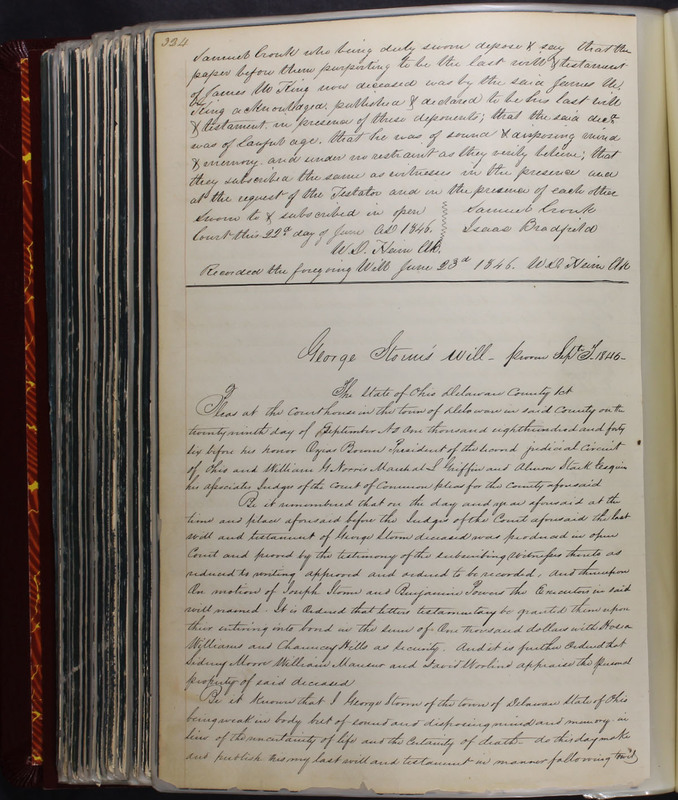 334
Samuel Cronk who being duly sworn depose & say that the
paper before them purporting to be the last will & testament
of James W. King now deceased was by the said James W.
King acknowledged, published & declared to be his last will
& testament, in presence of these deponents; that the said decd.
was of lawful age, that he was of sound & disposing mind
& memory, and under no restraint as they verily believe; that
they subscribed the same as witnesses in the presence and
at the request of the Testator and in the presence of each other
Sworn to & subscribed in open Samuel Cronk
Court this 22d day of June AD 1846. Isaac Bradfield
W. D. Heim Clk.
Recorded the foregoing Will June 23d 1846. W. D. Heim Clk
George Storm's Will - proven Sept T. 1846 -
The State of Ohio Delaware County Sct
Pleas at the Court house in the town of Delaware in said County on the
twenty ninth day of September AD One thousand eight hundred and forty
six before his honor Ozias Bowen President of the second judicial Circuit
of Ohio and William G. Norris Marshal L. Griffin and Almon Stark Esquires
his associate Judges of the Court of Common pleas for the County aforesaid
Be it remembered that on the day and year aforesaid at the
time and place aforesaid before the Judges of the Court aforesaid the last
will and testament of George Storm deceased was produced in open
Court and proved by the testimony of the subscribing Witnesses thereto as
reduced to writing approved and ordered to be recorded, and thereupon
On motion of Joseph Storm and Benjamin Powers the Executors in said
will named. It is Ordered that letters testamentary be granted them upon
their entering into bond in the sum of One thousand dollars with Hosea
Williams and Chauncey Hills as security. And it is further Ordered that
Sidney Moore William Manser and David Worline appraise the personal
property of said deceased
Be it Known that I George Storm of the town of Delaware State of Ohio
being weak in body but of sound and disposing mind and memory in
view of the uncertainty of life and the Certainty of death - do this day make
and publish this my last will and testament in manner following towit